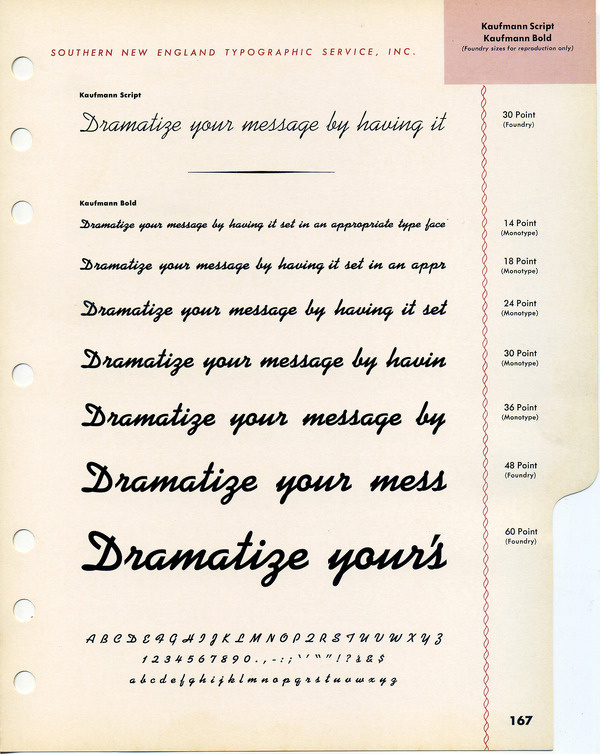 Kaufmann Script
Kaufmann Bold
(Foundry sizes for reproduction only)
SOUTHERN NEW ENGLAND TYPOGRAPHIC SERVICE, INC.
Kaufmann Script
Dramatize your message by having it
30 Point
(Foundry)
Kaufmann Bold
Dramatize your message by having it set in an appropriate type face
14 Point
(Monotype)
Dramatize your message by having it set in an appr
18 Point
(Monotype)
Dramatize your message by having it set
24 Point
(Monotype)
Dramatize your message by havin
30 Point
(Monotype)
Dramatize your message by
36 Point
(Monotype)
Dramatize your mess
48 Point
(Foundry)
Dramatize your's
60 Point
(Foundry)
A B C D E F G H I J K L M N O P Q R S T U V W X Y Z
1 2 3 4 5 6 7 8 9 0 . , - : ; ' ' " " ! ? & & $
a b c d e f g h i j k l m n o p q r s t u v w x y z
167